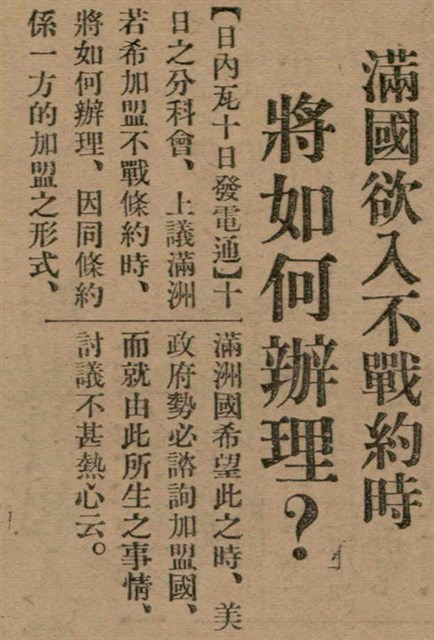 滿國欲入不戰約時
將如何辦理？
【日內瓦十日發電通】十
日之分科會、上議滿洲
若希加盟不戰條約時、
將如何辦理、因同條約
係一方的加盟之形式、
滿洲國希望此之時、美
政府勢必諮詢加盟國、
而就由此所生之事情、
討議不甚熱心云。